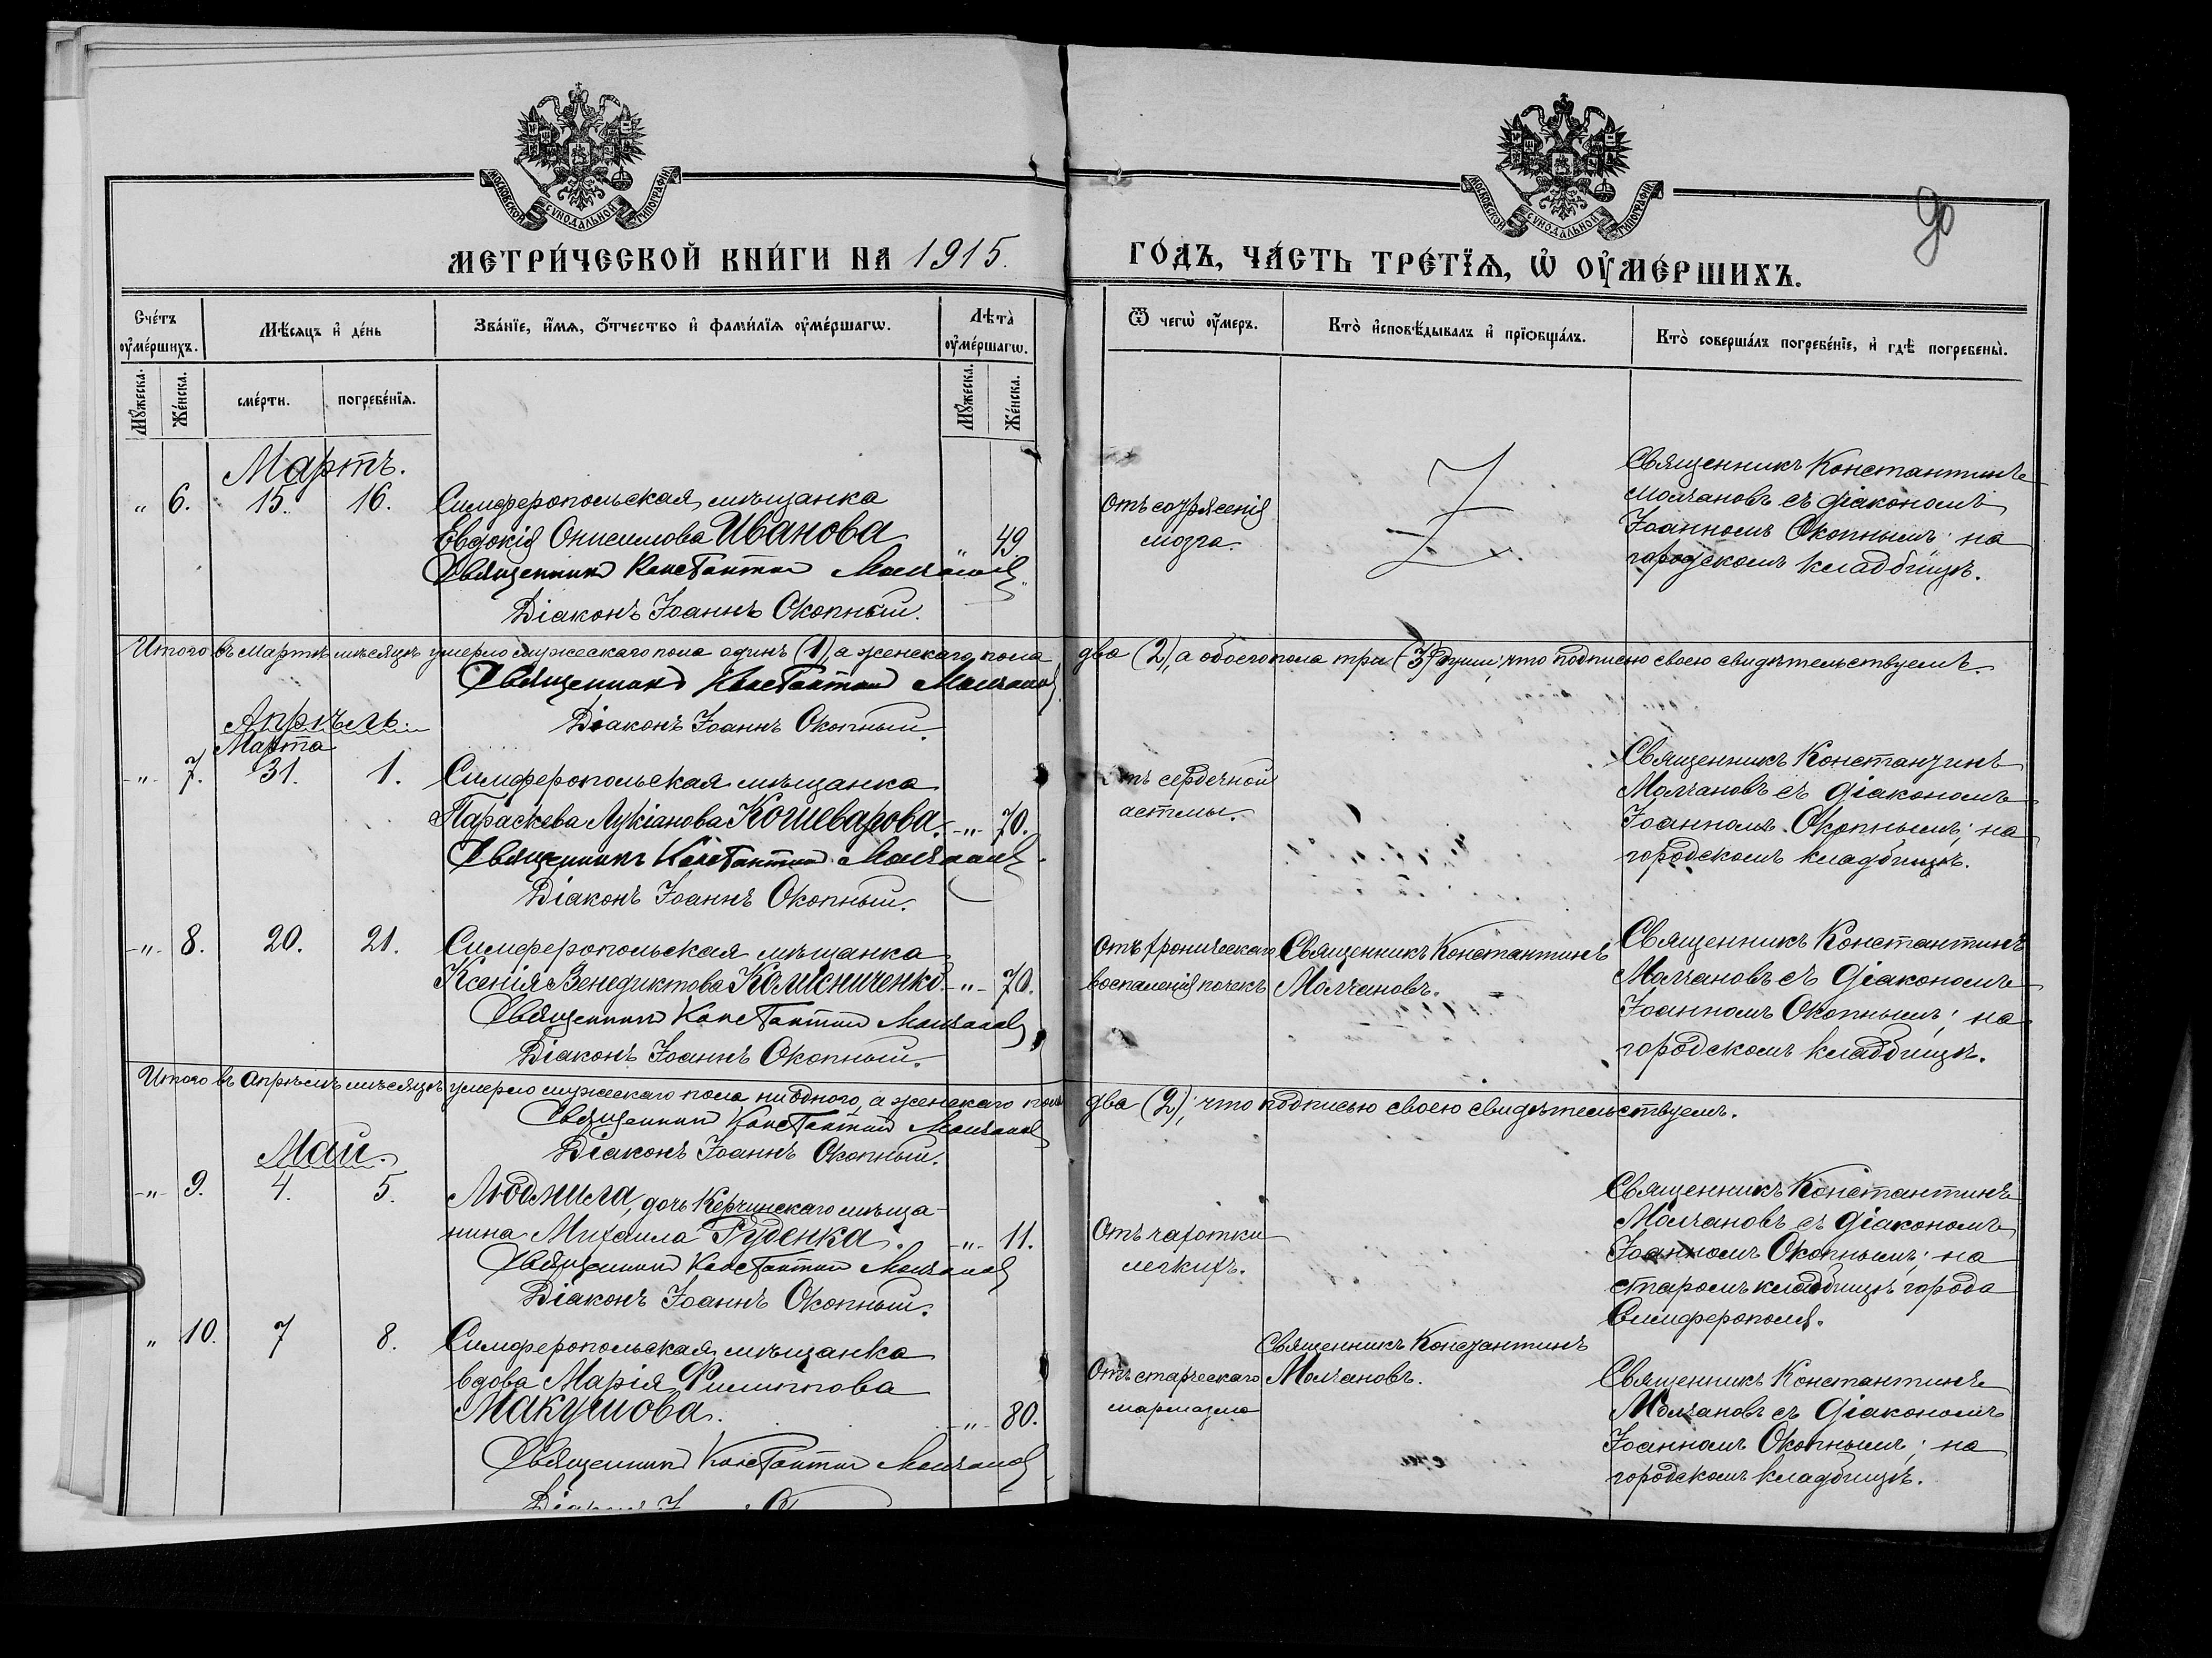 МОСКОВСКОЙ СѴНОДАЛЬНОЙ ТИПОГРАФІИ
МОСКОВСКОЙ СѴНОДАЛЬНОЙ ТИПОГРАФІИ
90
МЕТРИ́ЧЕСКОЙ КНИ́ГИ НА 1915.
ГО́ДЪ, ЧА́СТЬ ТРЕ́ТЇѦ, Ѡ҆ ОУ҆МЕ́РШИХЪ.
Сче́тъ оу҆ме́ршихъ.
Мѣ́сяцъ и҆ де́нь
Зва́нїе, и҆́мѧ, ѻ҆́тчество и҆ фами́лїѧ оу҆ме́ршагѡ.
Лѣта̀ оу҆ме́ршагѡ.
Ѿ чегѡ̀ оу҆́меръ.
Кто̀ и҆сповѣ́дывалъ и҆ прїѻбща́лъ.
Кто̀ соверша́лъ погребе́нїе, и҆ гдѣ̀ погребены̀.
Мꙋ́жеска.
Же́нска.
сме́рти.
погребе́нїѧ.
Мꙋ́жеска.
Же́нска.
Мартъ.
„ 6. 15. 16. Симферопольская мѣщанка
Евдокія Онисимова Иванова „ 49.
Священникъ Константинъ Молчановъ
Діаконъ Іоаннъ Окопный.
Отъ сотрясенія
мозга.
Священникъ Константинъ
Молчановъ съ діакономъ
Іоанномъ Окопнымъ; на
городскомъ кладбищѣ.
Итого въ Мартѣ мѣсяцѣ умерло мужескаго пола одинъ (1), а женскаго пола два (2), а обоего пола три (3) души; что подписью своею свидѣтельствуемъ.
Священникъ Константинъ Молчановъ
Діаконъ Іоаннъ Окопный.
Апрѣль.
Марта
-„- 7. 31. 1. Симферопольская мѣщанка
Параскева Лукіанова Кошеварова. -„- 70.
Священникъ Константинъ Молчановъ
Діаконъ Іоаннъ Окопный.
Отъ сердечной
астмы.
Священникъ Константинъ
Молчановъ съ діакономъ
Іоанномъ Окопнымъ; на
городскомъ кладбищѣ.
-„- 8. 20. 21. Симферопольская мѣщанка
Ксенія Венедиктова Колисниченко. -„- 70.
Священникъ Константинъ Молчановъ
Діаконъ Іоаннъ Окопный.
Отъ хроническаго
воспаленія почекъ
Священникъ Константинъ
Молчановъ.
Священникъ Константинъ
Молчановъ съ діакономъ
Іоанномъ Окопнымъ; на
городскомъ кладбищѣ.
Итого въ Апрѣлѣ мѣсяцѣ умерло мужескаго пола ни одного, а женскаго пола два (2); что подписью своею свидѣтельствуемъ.
Священникъ Константинъ Молчановъ
Діаконъ Іоаннъ Окопный.
Май.
-„- 9. 4. 5. Людмила, дочь Керчинскаго мѣща-
нина Михаила Руденка. -„- 11.
Священникъ Константинъ Молчановъ
Діаконъ Іоаннъ Окопный.
Отъ чахотки
легкихъ.
Священникъ Константинъ
Молчановъ съ діакономъ
Іоанномъ Окопнымъ; на
старомъ кладбищѣ города
Симферополя.
„ 10. 7 8. Симферопольская мѣщанка
вдова Марія Филиппова
Макушова. -„- 80.
Священникъ Константинъ Молчановъ
Отъ старческаго
маразма
Священникъ Константинъ
Молчановъ.
Священникъ Константинъ
Молчановъ съ діакономъ
Іоанномъ Окопнымъ; на
городскомъ кладбищѣ.